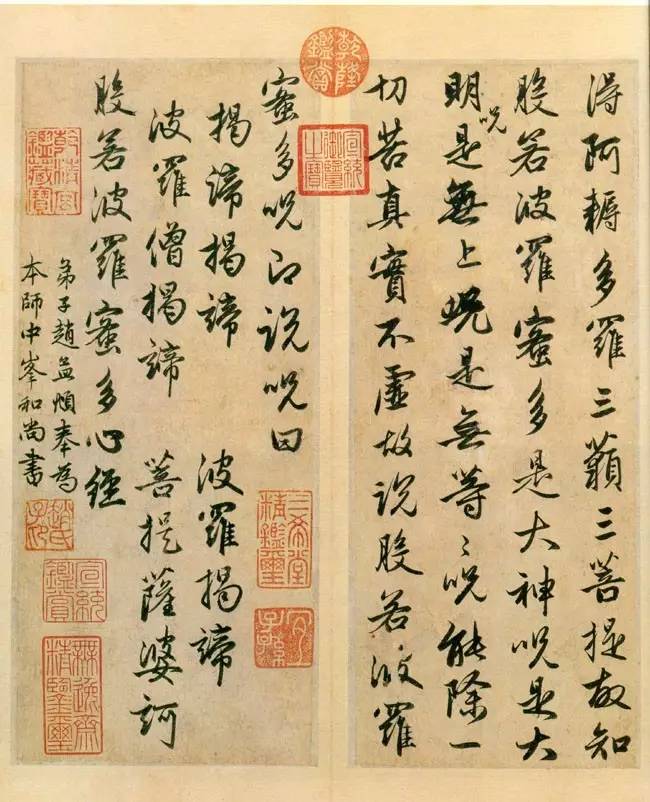 得阿耨多羅三藐三菩提故知
般若波羅蜜多是大神呪是大
明呪是無上呪是無等〻呪能除一
切苦真實不虛故說般若波羅
蜜多呪即說呪曰
揭諦揭諦 波羅揭諦
波羅僧揭諦 菩提薩婆訶
般若波羅蜜多心經
弟子趙孟頫奉為
本師中峯和尚書
乾隆鑑賞
宣統御覽之寶
三希堂精鑑璽
宜子孫
乾清宮鑑藏寶
趙氏子昂
宣統鑑賞
無逸齋精鑑璽